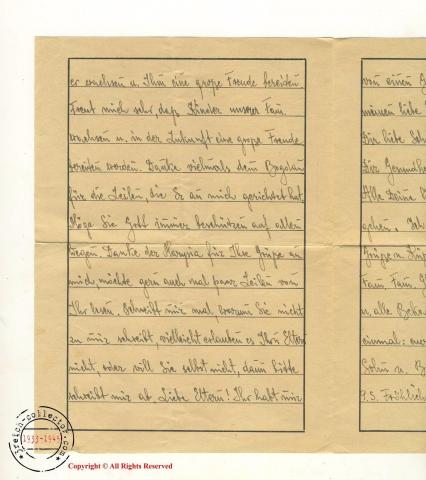 er wachsen u. Ihm eine große Freude bereiten
Freut mich sehr, daß Kinder unserer Fam.
wachsen u. in der Zukunft eine große Freude
bereiten werden. Danke vielmals dem Bogdan
für die Zeilen, die Er an mich gerichtet hat.
Möge Sie Gott immer beschützen auf allen
wegen. Danke der für Ihre Grüße an
mich, möchte gern auch mal paar Zeilen von
Ihr lesen, Schreibt mir mal, warum Sie nicht
zu mir schreibt, vielleicht erlauben es Ihr Eltern
nicht, oder will Sie selbst nicht, dann bitte
schreibt mir ab. Liebe Eltern! Ihr habt mir
von einem
meinen liebe
Die liebe
Der Gesundhe
Alle Deine
gehen.
Grüße u.
Fam. Fam.
u. alle Beka
einmal:
Sohn u. B
9.S. Fröhlich
reich-collector.com
1933-1945
Copyright © All Rights Reserved